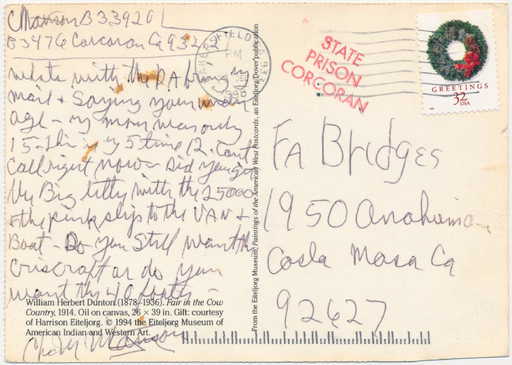 CManson B33920
B3476 Corcoran Ca 93212
with the DA bring my
mail & Saying your
age - my mom was only
15-
call right now - Did you get
the Big with the 25000
& the pink slip to the VAN &
Boat - Do you Still want the
criscraft or do you
want the 40
William Herbert Dunton (1878–1936). Fair in the Cow
Country, 1914. Oil on canvas, 26 × 39 in. Gift: courtesy
of Harrison Eiteljorg. © 1994 the Eiteljorg Museum of
American Indian and Western Art.
Manson
From the Eiteljorg Museum Paintings of the American West Postcards, an Eiteljorg/Dover publication
BAKERSFIELD
PM
STATE
PRISON
CORCORAN
GREETINGS
32
USA
FA Bridges
1950 Anahiem
Costa Masa Ca
92627